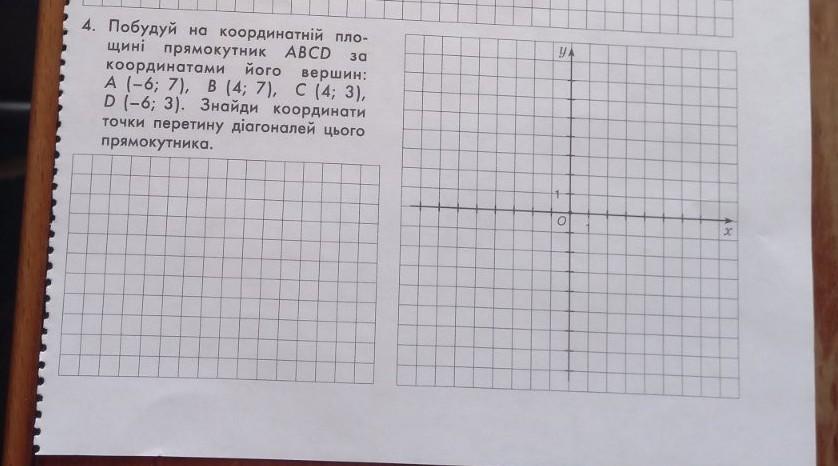 4. Побудуй на координатній пло-
щині прямокутник ABCD за
координатами його вершин:
A (–6; 7), B (4; 7), C (4; 3),
D (–6; 3). Знайди координати
точки перетину діагоналей цього
прямокутника.
y
1
O
1
x